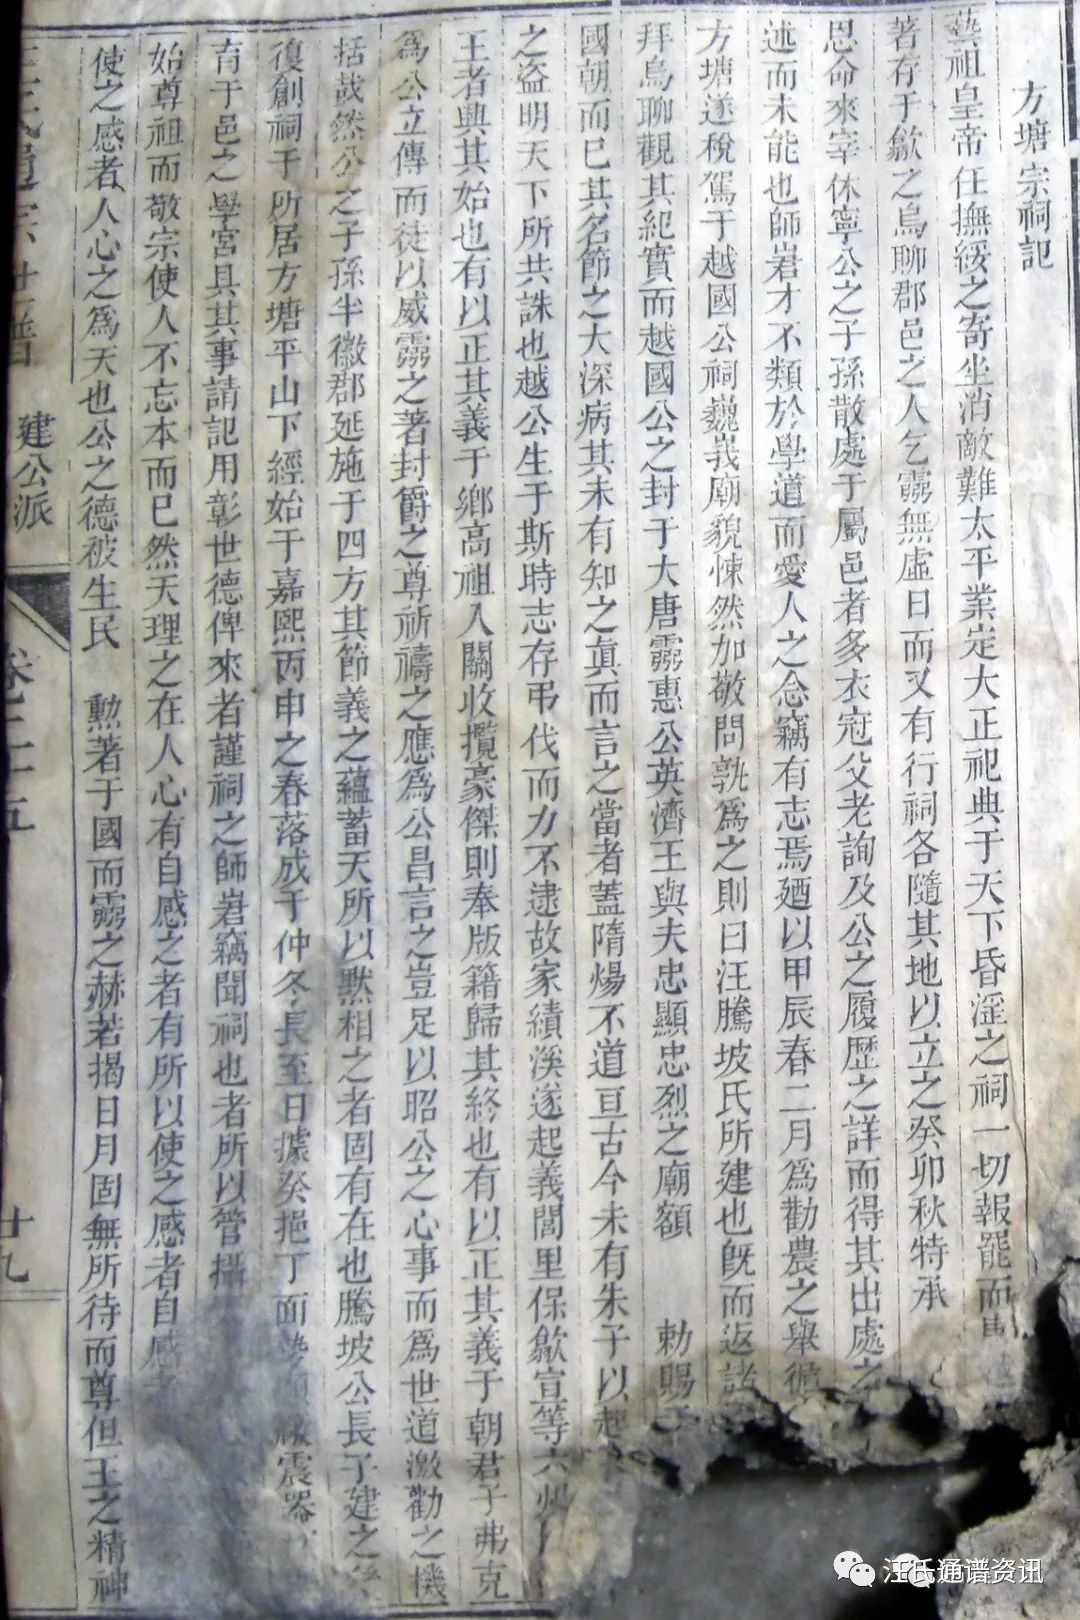 方塘宗祠記
藝祖皇帝任撫綏之寄坐消敵難太平業定大正祀典于天下昏淫之祠一切報罷而
著存于歙之烏聊郡邑之人乞靈無虛日而又有行祠各隨其地以立之癸卯秋特承
恩命來宰休寧公之子孫散處于屬邑者多衣冠父老詢及公之履歷之詳而得其出處之
述而未能也師岩才不類於學道而愛人之念竊有志焉廼以甲辰春二月為勸農之舉循
方塘遂稅駕于越國公祠巍峩廟貌悚然加敬問孰為之則曰汪騰坡氏所建也旣而返諸
拜烏聊觀其紀實而越國公之封于大唐靈惠公英濟王與夫忠顯忠烈之廟額 勅賜于
國朝而已其名節之大深病其未有知之眞而言之當者蓋隋煬不道亘古今未有朱子以起
之盜明天下所共誅也越公生于斯時志存弔代而力不逮故家績溪遂起義閭里保歙宣等六州
王者興其始也有以正其義于鄉高祖入關收攬豪傑則奉版籍歸其終也有以正其義于朝君子弗克
為公立傳而徒以威靈之著封爵之尊祈禱之應為公昌言之豈足以昭公之心事而為世道激勸之機
括哉然公之子孫半徽郡延施于四方其節義之蘊蓄天所以默相之者固有在也騰坡公長子建之
復創祠于所居方塘平山下經始于嘉熙丙申之春落成于仲冬長至日據癸挹丁面 震
育于邑之學宮具其事請記用彰世德俾來者謹祠之師岩竊聞祠也者所以管攝
始尊祖而敬宗使人不忘本而已然天理之在人心有自感之者有所以使之感者自感
使之感者人心之為天也公之德被生民 勲著于國而靈之赫若揭日月固無所待而尊但王之精神
汪氏通宗世譜 建公派 卷二十五 廿九
汪氏通谱资讯